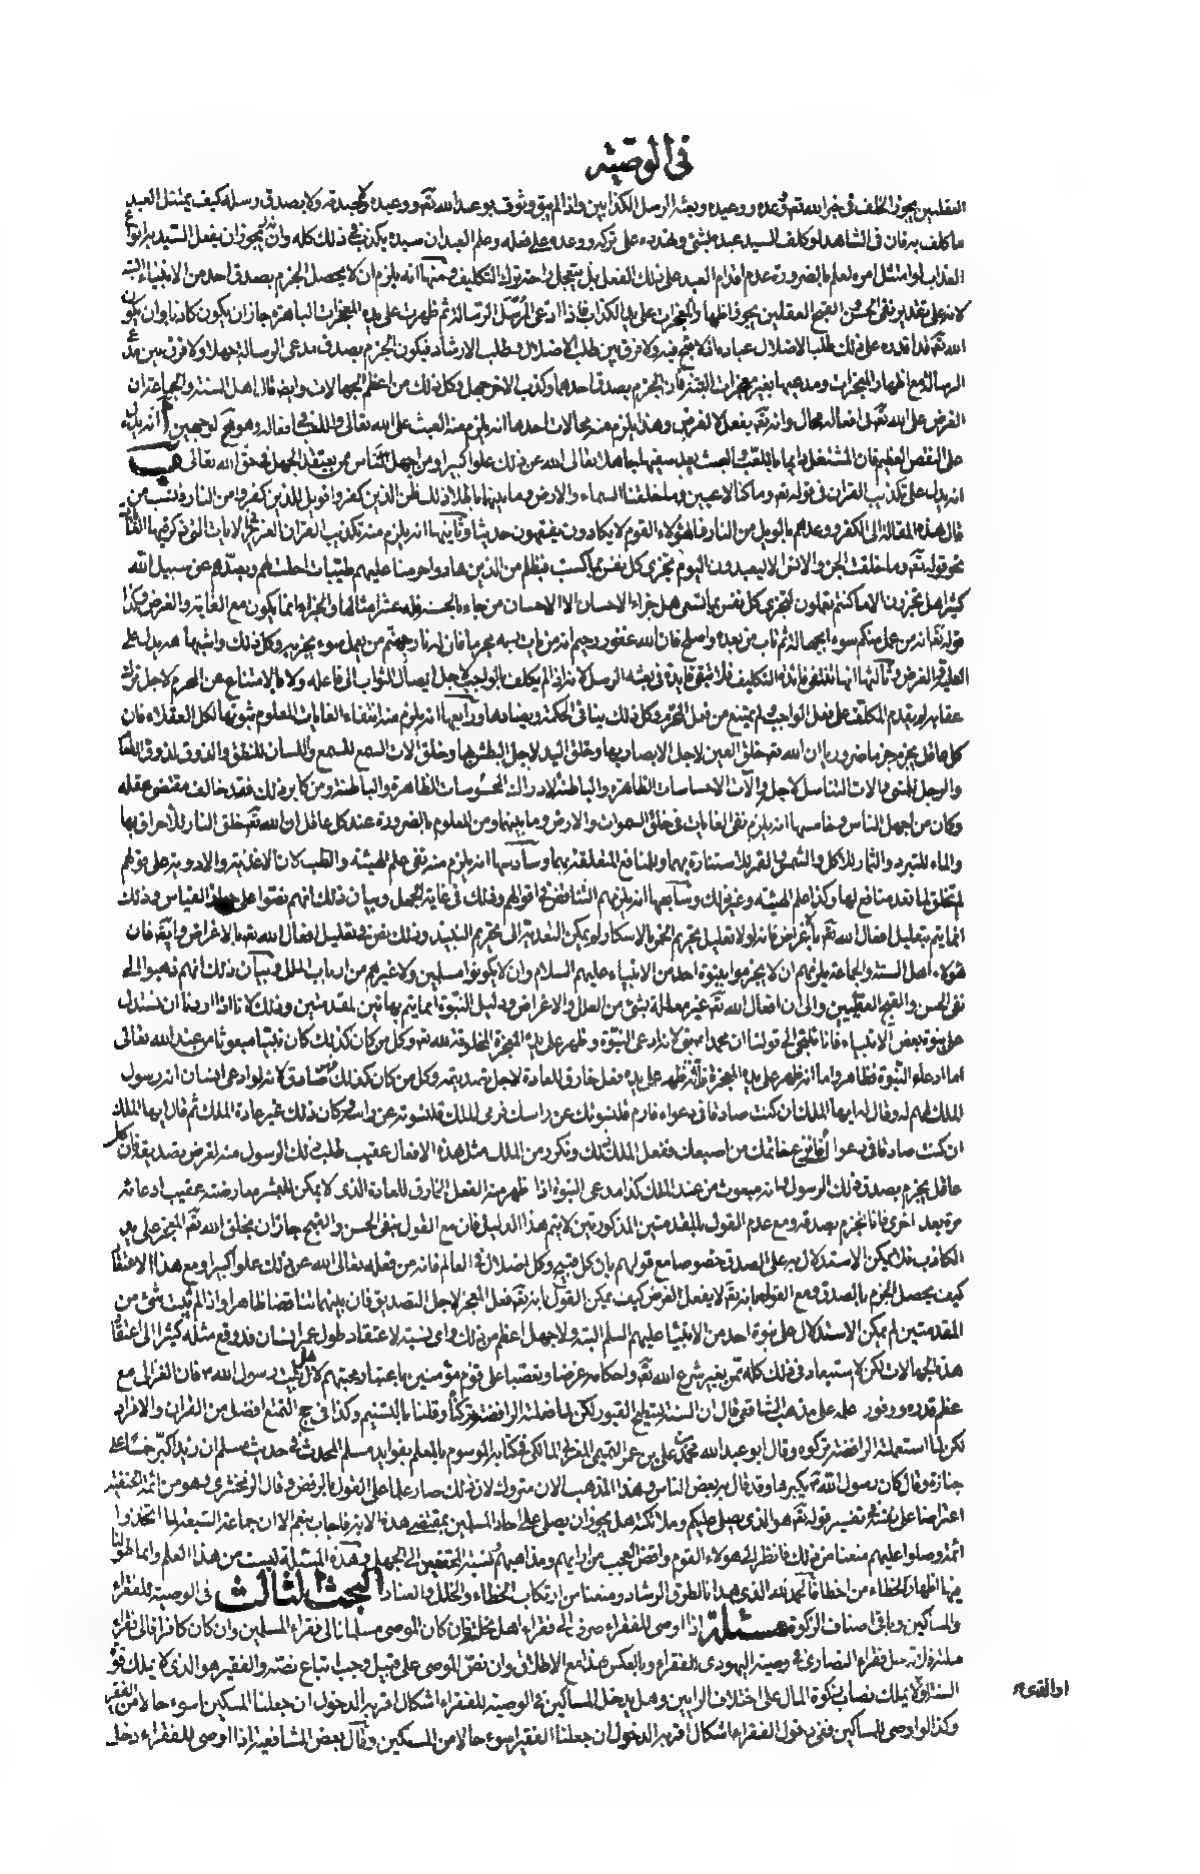 في الوصية
العقليين يجوز الخلف في خبر الله تعـ ووعده ووعيده وبعثه الرسل الكذابين واذا لم يبق وثوق بوعد الله تعـ ووعيده ولا بصدق رسله كيف يمتثل العبد
ما كلف به فان في الشاهد لو كلف السيد عبده بشئ وتهدده على تركه ووعده على فعله وعلم العبد ان سيده يكذب في ذلك كله وانه يجوز ان يفعل السيد به انواع
العذاب لو امتثل امره لعلم بالضرورة عدم اقدام العبد على ذلك الفعل بل يتعجل راحة ترك التكليف ومنها انه يلزم ان لا يحصل الجزم بصدق احد من الانبياء البتة
لانه على تقدير نفي الحسن والقبح العقليين يجوز اظهار المعجزات على يد الكذاب فاذا ادعى المرسل الرسالة ثم ظهرت على يده المعجزات الباهرة جاز ان يكون كاذبا وان يكون
الله تعـ قد اقدره على ذلك طلبا لاضلال عباده اذ لا قبح فيه ولا فرق بين طلب الاضلال وطلب الارشاد فيكون الجزم بصدق مدعى الرسالة جهلا ولا فرق بين مدعى
الرسالة مع اظهار المعجزات ومدعيها بغير معجزات البتة فان الجزم بصدق احدهما وكذب الاخر جهل وكل ذلك من اعظم الجهالات وايضا قال اهل السنة والجماعة ان
الغرض على الله تعـ في افعاله محال وانه تعـ يفعل لا لغرض وهذا يلزم منه محالات احدها انه يلزم منه العبث على الله تعالى واللعب في افعاله وهو قبيح لوجهين أ انه يدل
على النقص العظيم فان المشتغل دائما باللعب والعبث يعد سفيها جاهلا تعالى الله عن ذلك علوا كبيرا ومن اجهل الناس ممن يعتقد الجهل في حق الله تعالى ب
انه يدل على تكذيب القران في قوله تعـ وما كنا لاعبين وما خلقنا السماء والارض وما بينهما باطلا ذلك ظن الذين كفروا فويل للذين كفروا من النار فنسب من
قال هذه المقالة الى الكفر ووعدهم بالويل من النار فما لهؤلاء القوم لا يكادون يفقهون حديثا وثانيها انه يلزم منه تكذيب القران العزيز في الايات التي ذكر فيها الغايات
نحو قوله تعـ وما خلقت الجن والانس الا ليعبدون اليوم تجزى كل نفس بما كسبت فبظلم من الذين هادوا حرمنا عليهم طيبات احلت لهم وبصدهم عن سبيل الله
كثيرا هل تجزون الا ما كنتم تعملون لتجزى كل نفس بما تسعى هل جزاء الاحسان الا الاحسان من جاء بالحسنة فله عشر امثالها والجزاء انما يكون مع الغاية والغرض وكذا
قوله تعـ انه من عمل منكم سوءا بجهالة ثم تاب من بعده واصلح فان الله غفور رحيم انه من يات ربه مجرما فان له نار جهنم من يعمل سوء يجز به وكل ذلك واشباهه يدل على
العلة والغرض وثالثها انها تنتفى فائدة التكليف فلا تبقى فايدة في بعثه الرسل لانه اذا لم يكلف بالواجب لاجل ايصال الثواب الى فاعله ولا بالامتناع عن المحرم لاجل ترك
عقابه لم يقدم المكلف على فعل الواجب ولم يمتنع من فعل المحرم وكل ذلك ينافي الحكمة ويضادها ورابعها انه يلزم منه انتفاء الغايات المعلوم ثبوتها لكل العقلاء فان
كل عاقل يجزم جزما ضروريا ان الله تعـ خلق العين لاجل الابصار بها وخلق اليد لاجل البطش بها وخلق الات السمع للسمع واللسان للنطق والذوق لذوق الطعام
والرجل للمشي والات التناسل لاجله والات الاحساسات الظاهرة والباطنة لادراك المحسوسات الظاهرة والباطنة ومن كابر ذلك فقد خالف مقتضى عقله
وكان من اجهل الناس وخامسها انه يلزم نفي الغايات في خلق السموات والارض وما بينهما ومن المعلوم بالضرورة عند كل عاقل ان الله تعـ خلق النار للاحراق بها
والماء للتبريد والثمار للاكل والشمس والقمر للاستنارة بهما والمنافع المتعلقة بهما وسادسها انه يلزم منه نفي علم الهيئة والطب لان الاغذية والادوية على قولهم
لم تخلق لما تعد منافع لها وكذا علم الهيئة وغير ذلك وسابعها انه يلزمهم التناقض في اقوالهم وذلك في غاية الجهل وبيان ذلك انهم نصوا على القياس وذلك
انما يتم بتعليل افعال الله تعـ باغراض فانه لولا تعليل تحريم الخمر بالاسكار لم يمكن التعدية الى تحريم النبيذ وذلك نص في تعليل افعال الله تعـ بالاغراض وايضا فان
هؤلاء اهل السنة والجماعة يلزمهم ان لا يجزموا بنبوة احد من الانبياء عليهم السلام وان لا يكونوا مسلمين ولا غيرهم من ارباب الملل وبيان ذلك انهم ذهبوا الى
نفي الحسن والقبح العقليين والى ان افعال الله تعـ غير معللة بشئ من العلل والاغراض ودليل النبوة انما يتم بهاتين المقدمتين وذلك لانا اذا اردنا ان نستدل
على نبوة بعض الانبياء فانا نلتجى الى قولنا ان محمدا صـ نبي لانه ادعى النبوة وظهر على يده المعجزة المخلوقة لله تعـ وكل من كان كذلك كان نبيا مبعوثا من عند الله تعالى
اما ادعاء النبوة فظاهر واما انه ظهر على يده المعجزة فلانه ظهر على يده فعل خارق للعادة لاجل تصديقه وكل من كان كذلك فهو صادق لانه لو ادعى انسان انه رسول
الملك اليهم له وقال له ايها الملك ان كنت صادقا في دعواه فارم قلنسوتك عن راسك فرمى الملك قلنسوته عن راسه وكان ذلك غير عادة الملك ثم قال ايها الملك
ان كنت صادقا في دعواي فانزع خاتمك من اصبعك ففعل الملك ذلك وتكرر من الملك مثل هذه الافعال عقيب طلب ذلك الرسول منه لغرض تصديقه فان كل
عاقل يجزم بصدق ذلك الرسول وانه مبعوث من عند الملك كذا مدعى النبوة اذا ظهر منه الفعل الخارق للعادة الذي لا يمكن للبشر معارضته عقيب ادعائه
مرة بعد اخرى فانا نجزم بصدقه ومع عدم القول بالمقدمتين المذكورتين لا يتم هذا الدليل فان مع القول بنفي الحسن والقبح جاز ان يخلق الله تعـ المعجز على يد
الكاذب فلا يمكن الاستدلال به على الصدق خصوصا مع قولهم بان كل قبيح وكل اضلال في العالم فانه من فعله تعالى الله عن ذلك علوا كبيرا ومع هذا الاعتقاد
كيف يحصل الجزم بالصدق ومع القول بانه تعـ لا يفعل لغرض كيف يمكن القول بانه تعـ فعل المعجز لاجل التصديق فان بينهما تناقضا ظاهرا واذا لم يثبت شئ من
المقدمتين لم يمكن الاستدلال على نبوة احد من الانبياء عليهم السلم البتة ولا جهل اعظم من ذلك واى نسبة لاعتقاد طول عمر انسان قد وقع مثله كثيرا الى اعتقاد
هذه الجهالات لكن لا استبعاد في ذلك كله ممن يغير شرع الله تعـ واحكامه عرضا وتعصبا على قوم مؤمنين باعتبار محبتهم لاهل بيت رسول الله صـ فان الغزالى مع
عظم قدره ووفور علمه على مذهب الشافعي قال ان السنة تسطيح القبور لكن لما فعلته الرافضة تركناه وقلنا بالتسنيم وكذا في حج التمتع افضل من القران والافراد
لكن لما استعملته الرافضة تركوه وقال ابو عبد الله محمد بن علي بن عمر التميمي المازري المالكي في كتابه الموسوم بالمعلم بفوايد مسلم المحدث في حديث مسلم ان زيدا كبر خمسا على
جنازة وقال كان رسول الله صـ يكبرها وقد قال به بعض الناس وهذا المذهب الان متروك لان ذلك صار علما على القول بالرفض وقال الزمخشري وهو من ائمة الحنفية
اعتراضا على نفسه في تفسير قوله تعـ هو الذي يصلي عليكم وملائكته هل يجوز ان يصلى على احاد المسلمين بمقتضى هذه الاية فاجاب بنعم الا ان جماعة الشيعة لما اتخذوا
ائمة وصلوا عليهم منعنا من ذلك فانظر الى هؤلاء القوم واقض العجب من ارائهم ومذاهبهم كنسبة المحققين الى الجهل وهذه المسئلة ليست من هذا العلم وانما طولنا
فيها اظهارا للخطاء من اخطا فالحمد لله الذي هدانا لطرق الرشاد ومنعنا من ارتكاب الخطاء والخلل والعناد البحث الثالث في الوصية للفقراء
والمساكين وباقي اصناف الزكوة مسئلة اذا اوصى للفقراء صرف الى فقراء اهل نحلته فان كان الموصى مسلما فالى فقراء المسلمين وان كان كافرا فالى فقراء
ملته فلا يدخل فقراء النصارى في وصية اليهودى للفقراء وبالعكس هذا مع الاطلاق وان نص الموصى على قبيل وجب اتباع نصه والفقير هو الذي لا يملك قوت
السنة ولا يملك نصاب زكوة المال على اختلاف الرايين وهل يدخل المساكين في الوصية للفقراء اشكال اقربه الدخول ان جعلنا المسكين اسوء حالا من الفقير
وكذا لو اوصى للمساكين ففي دخول الفقراء اشكال اقربه الدخول ان جعلنا الفقير اسوء حالا من المسكين وقال بعض الشافعية اذا اوصى للفقراء دخل